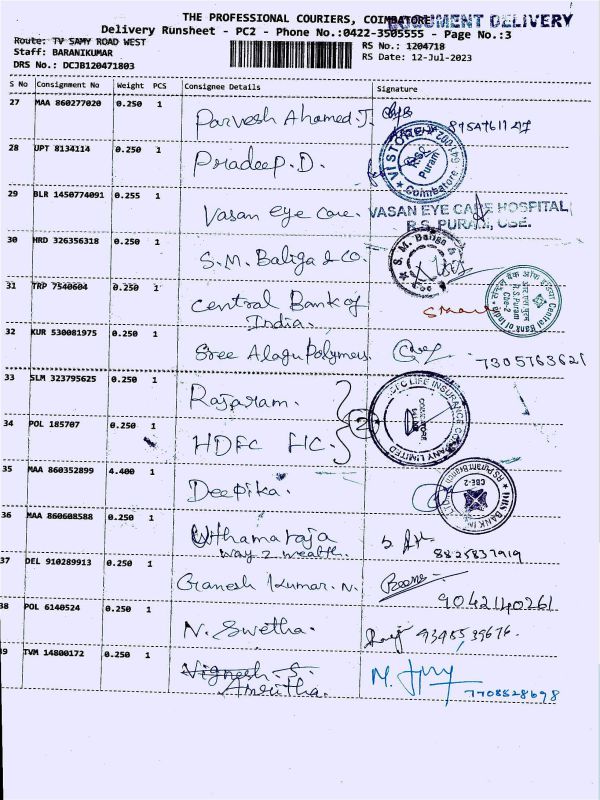 THE PROFESSIONAL COURIERS, COIMBATORE
DOCUMENT DELIVERY
Delivery Runsheet - PC2 - Phone No.:0422-3505555 - Page No.:3
Route: TV SAMY ROAD WEST
RS No.: 1204718
Staff: BARANIKUMAR
RS Date: 12-Jul-2023
DRS No.: DCJB120471803
S No Consignment No Weight PCS Consignee Details Signature
27 MAA 860277020 0.250 1 Parvesh Ahamed.J.
28 UPT 8134114 0.250 1 Pradeep.D.
VISTORE
R.S. Puram
Coimbatore
29 BLR 1450774091 0.255 1 Vasan eye care. VASAN EYE CARE HOSPITAL
R.S. PURAM, CBE.
30 HRD 326356318 0.250 1 S.M. Baliga & co.
31 TRP 7540604 0.250 1 Central Bank of
India.
Central Bank of India
R.S.Puram
Cbe-2
32 KUR 530081975 0.250 1 Sree Alagu Polymers. 7305763621
33 SLM 323795625 0.250 1 Rajaram.
2
LIFE INSURANCE COMPANY LIMITED
34 POL 185707 0.250 1 HDFC LIC.
35 MAA 860352899 4.400 1 Deepika.
RS Puram Branch
CBE-2
36 MAA 860608588 0.250 1 Uthamaraja
way 2 wealth. 8825837919
37 DEL 910289913 0.250 1 Ganesh kumar. N. 9042140261
38 POL 6140524 0.250 1 N. Swetha. 9395539676.
39 TVM 14800172 0.250 1 Vignesh. S.
Amritha. 7708528698